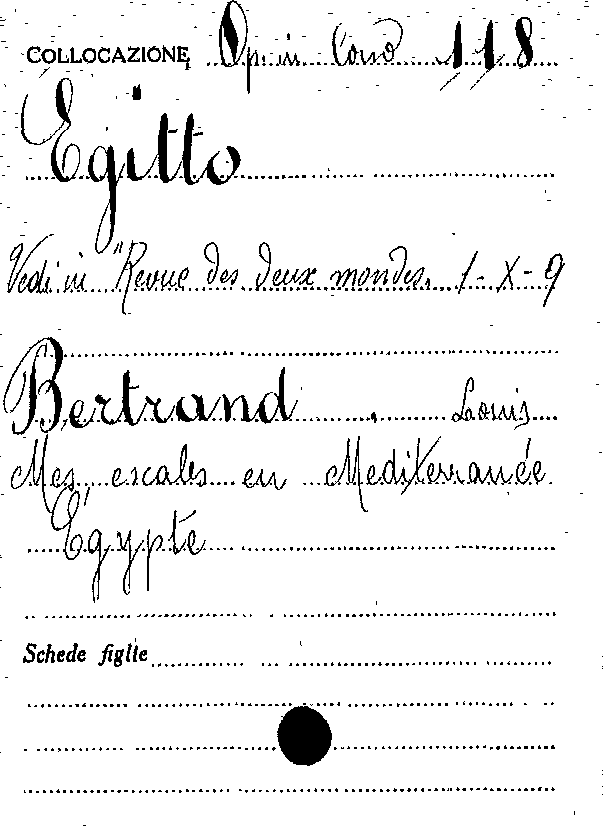 COLLOCAZIONE Op. in Cons 118
Egitto
Vedi in "Revue des deux mondes. 1-X-9
Bertrand, Louis
Mes escales en Mediterranée
Égypte
Schede figlie